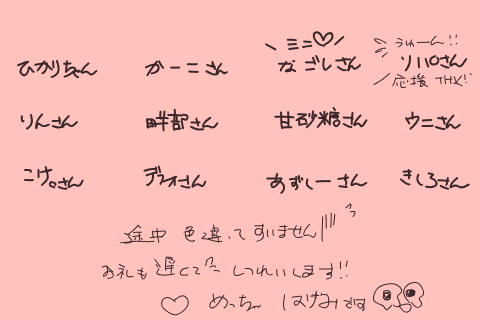 ミニ♡
うれーん!!
ひかりちゃん かーこさん なごしさん ソパロさん
応援 THX!!
りんさん 畔部さん 甘砂糖さん ウニさん
こけ。さん デオさん あずしーさん きしろさん
途中 色違って すいません
お礼も遅くて しつれいします!!
♡ めっちゃ はげみです